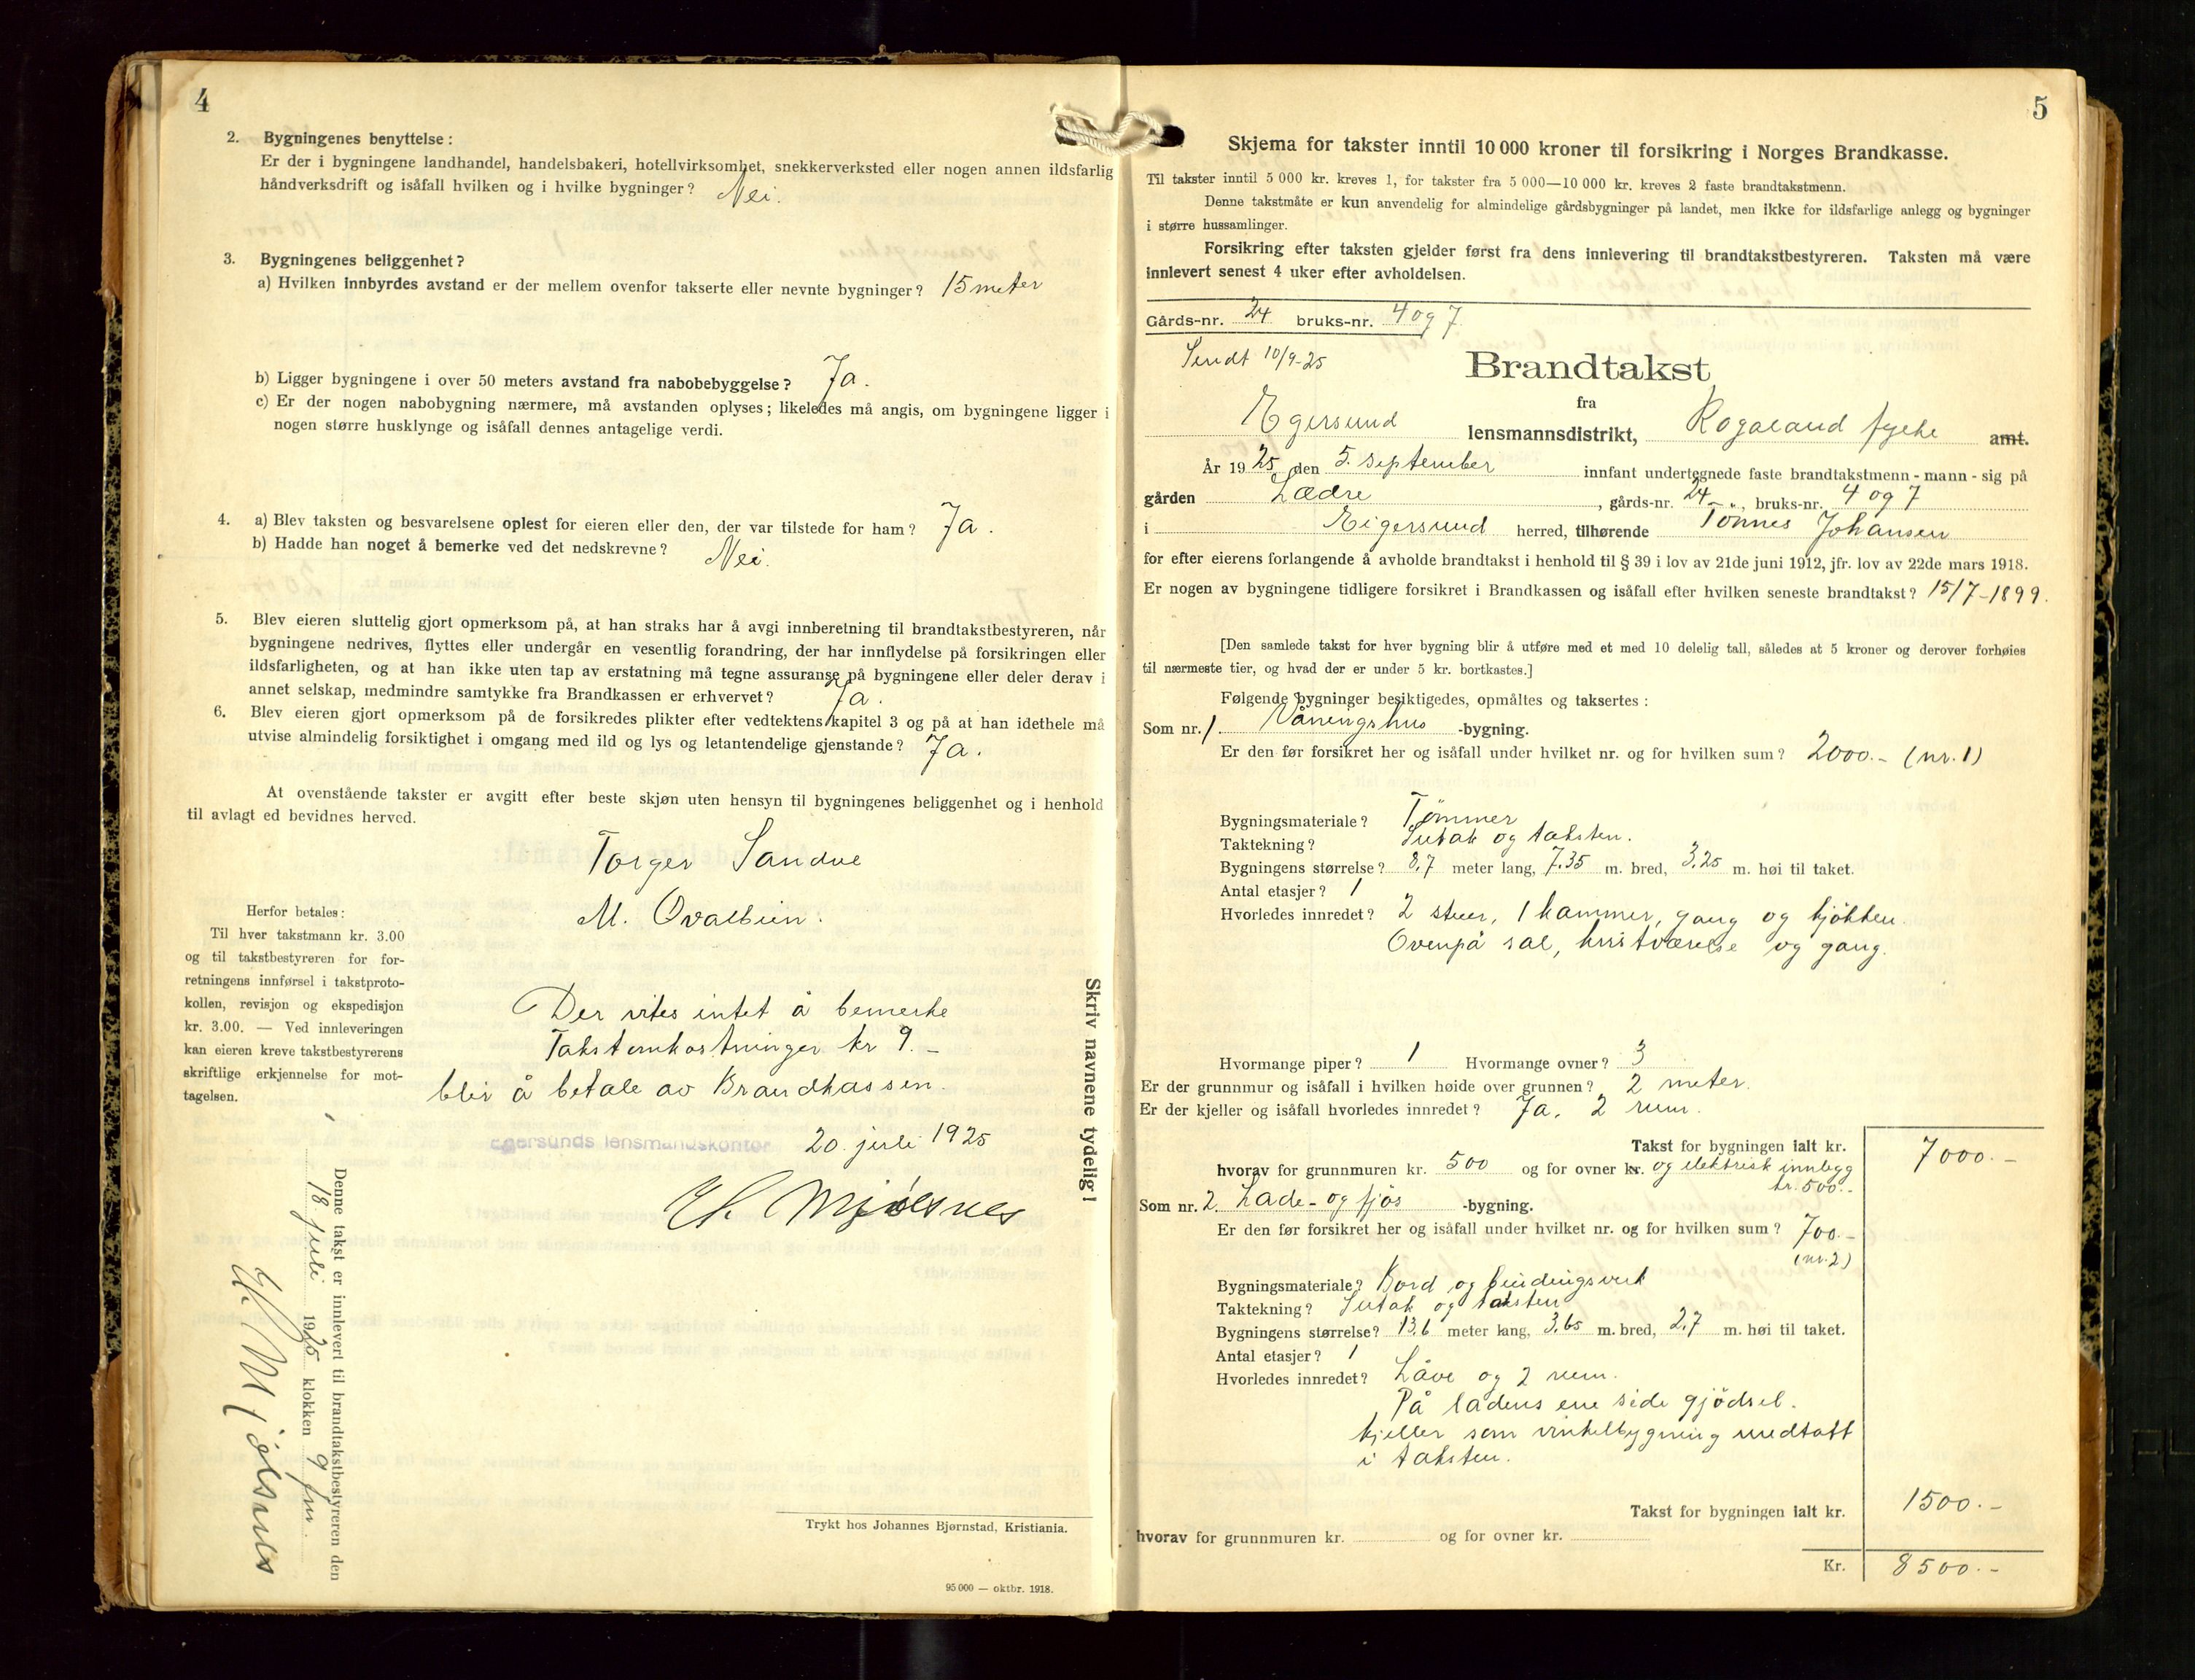 4
2. Bygningenes benyttelse:
Er der i bygningene landhandel, handelsbakeri, hotellvirksomhet, snekkerverksted eller nogen annen ildsfarlig
håndverksdrift og isåfall hvilken og i hvilke bygninger? Nei.
3. Bygningenes beliggenhet?
a) Hvilken innbyrdes avstand er der mellem ovenfor takserte eller nevnte bygninger? 15 meter
b) Ligger bygningene i over 50 meters avstand fra nabobebyggelse? Ja.
c) Er der nogen nabobygning nærmere, må avstanden oplyses; likeledes må angis, om bygningene ligger i
nogen større husklynge og isåfall dennes antagelige verdi.
4. a) Blev taksten og besvarelsene oplest for eieren eller den, der var tilstede for ham? Ja.
b) Hadde han noget å bemerke ved det nedskrevne? Nei.
5. Blev eieren sluttelig gjort opmerksom på, at han straks har å avgi innberetning til brandtakstbestyreren, når
bygningene nedrives, flyttes eller undergår en vesentlig forandring, der har innflydelse på forsikringen eller
ildsfarligheten, og at han ikke uten tap av erstatning må tegne assuranse på bygningene eller deler derav i
annet selskap, medmindre samtykke fra Brandkassen er erhvervet? Ja.
6. Blev eieren gjort opmerksom på de forsikredes plikter efter vedtektens kapitel 3 og på at han idethele må
utvise almindelig forsiktighet i omgang med ild og lys og letantendelige gjenstande? Ja.
At ovenstående takster er avgitt efter beste skjøn uten hensyn til bygningenes beliggenhet og i henhold
til avlagt ed bevidnes herved.
Torger Sandve
M.
Herfor betales:
Til hver takstmann kr. 3.00
og til takstbestyreren for for-
retningens innførsel i takstproto-
kollen, revisjon og ekspedisjon
kr. 3.00. — Ved innleveringen
kan eieren kreve takstbestyrerens
skriftlige erkjennelse for mot-
tagelsen.
Der vites intet å bemerke
Takstomkostninger kr 9.-
blir å betale av Brandkassen.
Egersunds lensmandskontor 20. juli 1925
Th. Mjølsnes
Skriv navnene tydelig!
Denne takst er innlevert til brandtakstbestyreren den
18 juli 1925 klokken 9 fm.
Th. Mjølsnes
Trykt hos Johannes Bjørnstad, Kristiania.
95 000 — oktbr. 1918.
5
Skjema for takster inntil 10 000 kroner til forsikring i Norges Brandkasse.
Til takster inntil 5 000 kr. kreves 1, for takster fra 5 000—10 000 kr. kreves 2 faste brandtakstmenn.
Denne takstmåte er kun anvendelig for almindelige gårdsbygninger på landet, men ikke for ildsfarlige anlegg og bygninger
i større hussamlinger.
Forsikring efter taksten gjelder først fra dens innlevering til brandtakstbestyreren. Taksten må være
innlevert senest 4 uker efter avholdelsen.
Gårds-nr. 24 bruks-nr. 4 og 7
Sendt 10/9-25
Brandtakst
fra
Egersund lensmannsdistrikt, Rogaland fylke amt.
År 1925 den 5. september innfant undertegnede faste brandtakstmenn - mann - sig på
gården Lædre, gårds-nr. 24 -, bruks-nr. 4 og 7
i Eigersund herred, tilhørende Tönnes Johansen
for efter eierens forlangende å avholde brandtakst i henhold til § 39 i lov av 21de juni 1912, jfr. lov av 22de mars 1918.
Er nogen av bygningene tidligere forsikret i Brandkassen og isåfall efter hvilken seneste brandtakst? 15/7-1899.
[Den samlede takst for hver bygning blir å utføre med et med 10 delelig tall, således at 5 kroner og derover forhøies
til nærmeste tier, og hvad der er under 5 kr. bortkastes.]
Følgende bygninger besiktigedes, opmåltes og taksertes:
Som nr. 1 Våningshus -bygning.
Er den før forsikret her og isåfall under hvilket nr. og for hvilken sum? 2000.- (nr. 1)
Bygningsmateriale? Tömmer
Taktekning? Sutak og taksten.
Bygningens størrelse? 8,7 meter lang, 7,35 m. bred, 3,25 m. høi til taket.
Antal etasjer? 1
Hvorledes innredet? 2 stuer, 1 kammer, gang og kjökken.
Ovenpå sal, kvistværelse og gang.
Hvormange piper? 1 Hvormange ovner? 3
Er der grunnmur og isåfall i hvilken høide over grunnen? 2 meter.
Er der kjeller og isåfall hvorledes innredet? Ja. 2 rum.
Takst for bygningen ialt kr. 7000.-
hvorav for grunnmuren kr. 500 og for ovner kr. og elektrisk innlegg
kr. 500.-
Som nr. 2 Lade- og fjös -bygning.
Er den før forsikret her og isåfall under hvilket nr. og for hvilken sum? 700.-
(nr. 2)
Bygningsmateriale? Bord og bindingsverk
Taktekning? Sutak og taksten
Bygningens størrelse? 13,6 meter lang, 3,65 m. bred, 2,7 m. høi til taket.
Antal etasjer? 1
Hvorledes innredet? Låve og 2 rum.
På ladens ene side gjödsel-
kjeller som vinkelbygning medtatt
i taksten.
Takst for bygningen ialt kr. 1500.-
hvorav for grunnmuren kr. og for ovner kr.
Kr. 8500.-